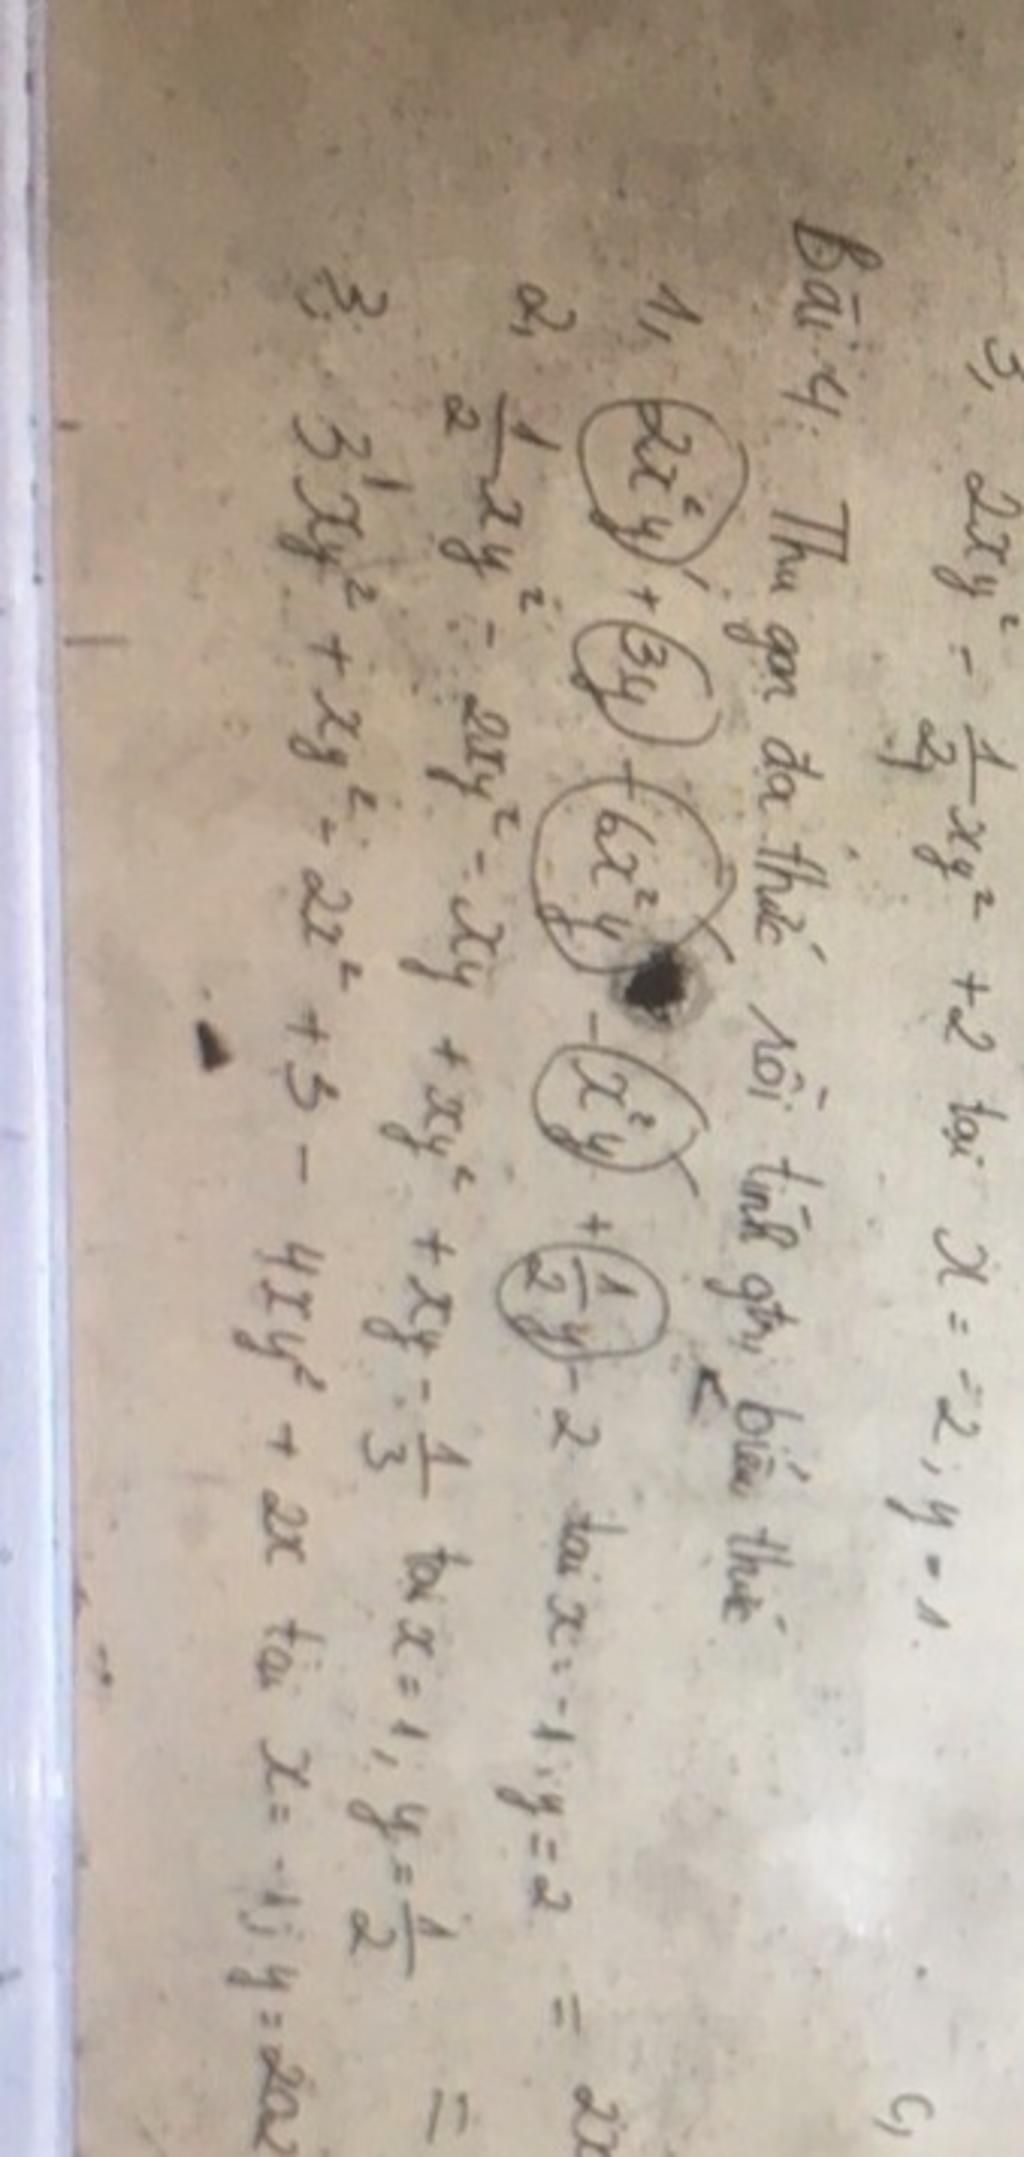 3, 2xy² - 1/2 xy² + 2 tại x = -2; y = 1
Bài 4: Thu gọn đa thức rồi tính gtrị biểu thức
1, 2x²y + 3y - 6x²y - x²y + 1/2 y - 2 tại x = -1; y = 2 = 2x
2, 1/2 xy² - 2xy² - xy + xy² + xy - 1/3 tại x = 1; y = 1/2 =
3, 3xy² + xy² - 2x² + 3 - 4xy² + 2x tại x = -1; y = 202